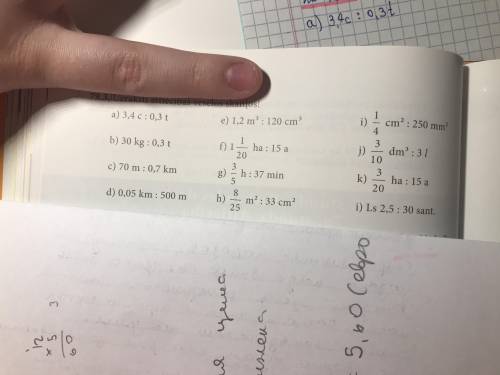 a) 3,4c : 0,3t
attiecības veselos skaitļos!
a) 3,4 c : 0,3 t
b) 30 kg : 0,3 t
c) 70 m : 0,7 km
d) 0,05 km : 500 m
e) 1,2 m³ : 120 cm³
f) 1 1/20 ha : 15 a
g) 3/5 h : 37 min
h) 8/25 m² : 33 cm²
i) 1/4 cm² : 250 mm²
j) 3/10 dm³ : 3 l
k) 3/20 ha : 15 a
i) Ls 2,5 : 30 sant.
12
× 5
60
3
цена
5,60 (евро